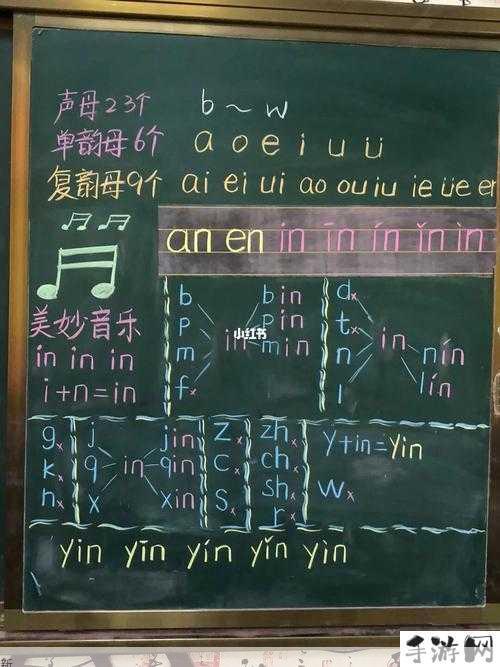 声母23个 b~w
单韵母6个 a o e i u ü
复韵母9个 ai ei ui ao ou iu ie üe er
an en in īn ín ǐn ìn
美妙音乐
in in in
i+n=in
b p m f× in bin pin min
小红书
d× t× n l in nín lín
g× k× h×
j q x in jin qin xin
z× c× s×
zh× ch× sh× r×
y+in=yin
w×
yin yīn yín yǐn yìn
手游网
新